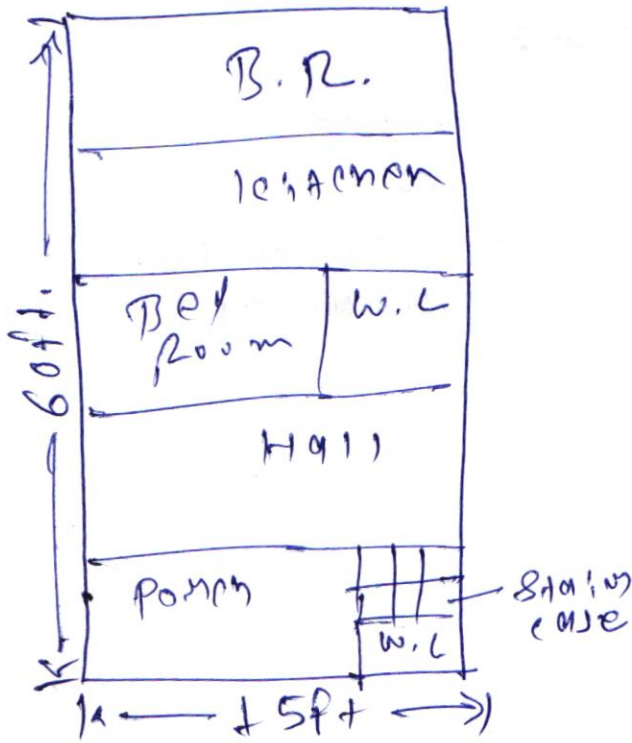 B.R.
Kitchen
Bed
Room
W.C
Hall
60ft.
Porch
Stair
case
W.C
15ft